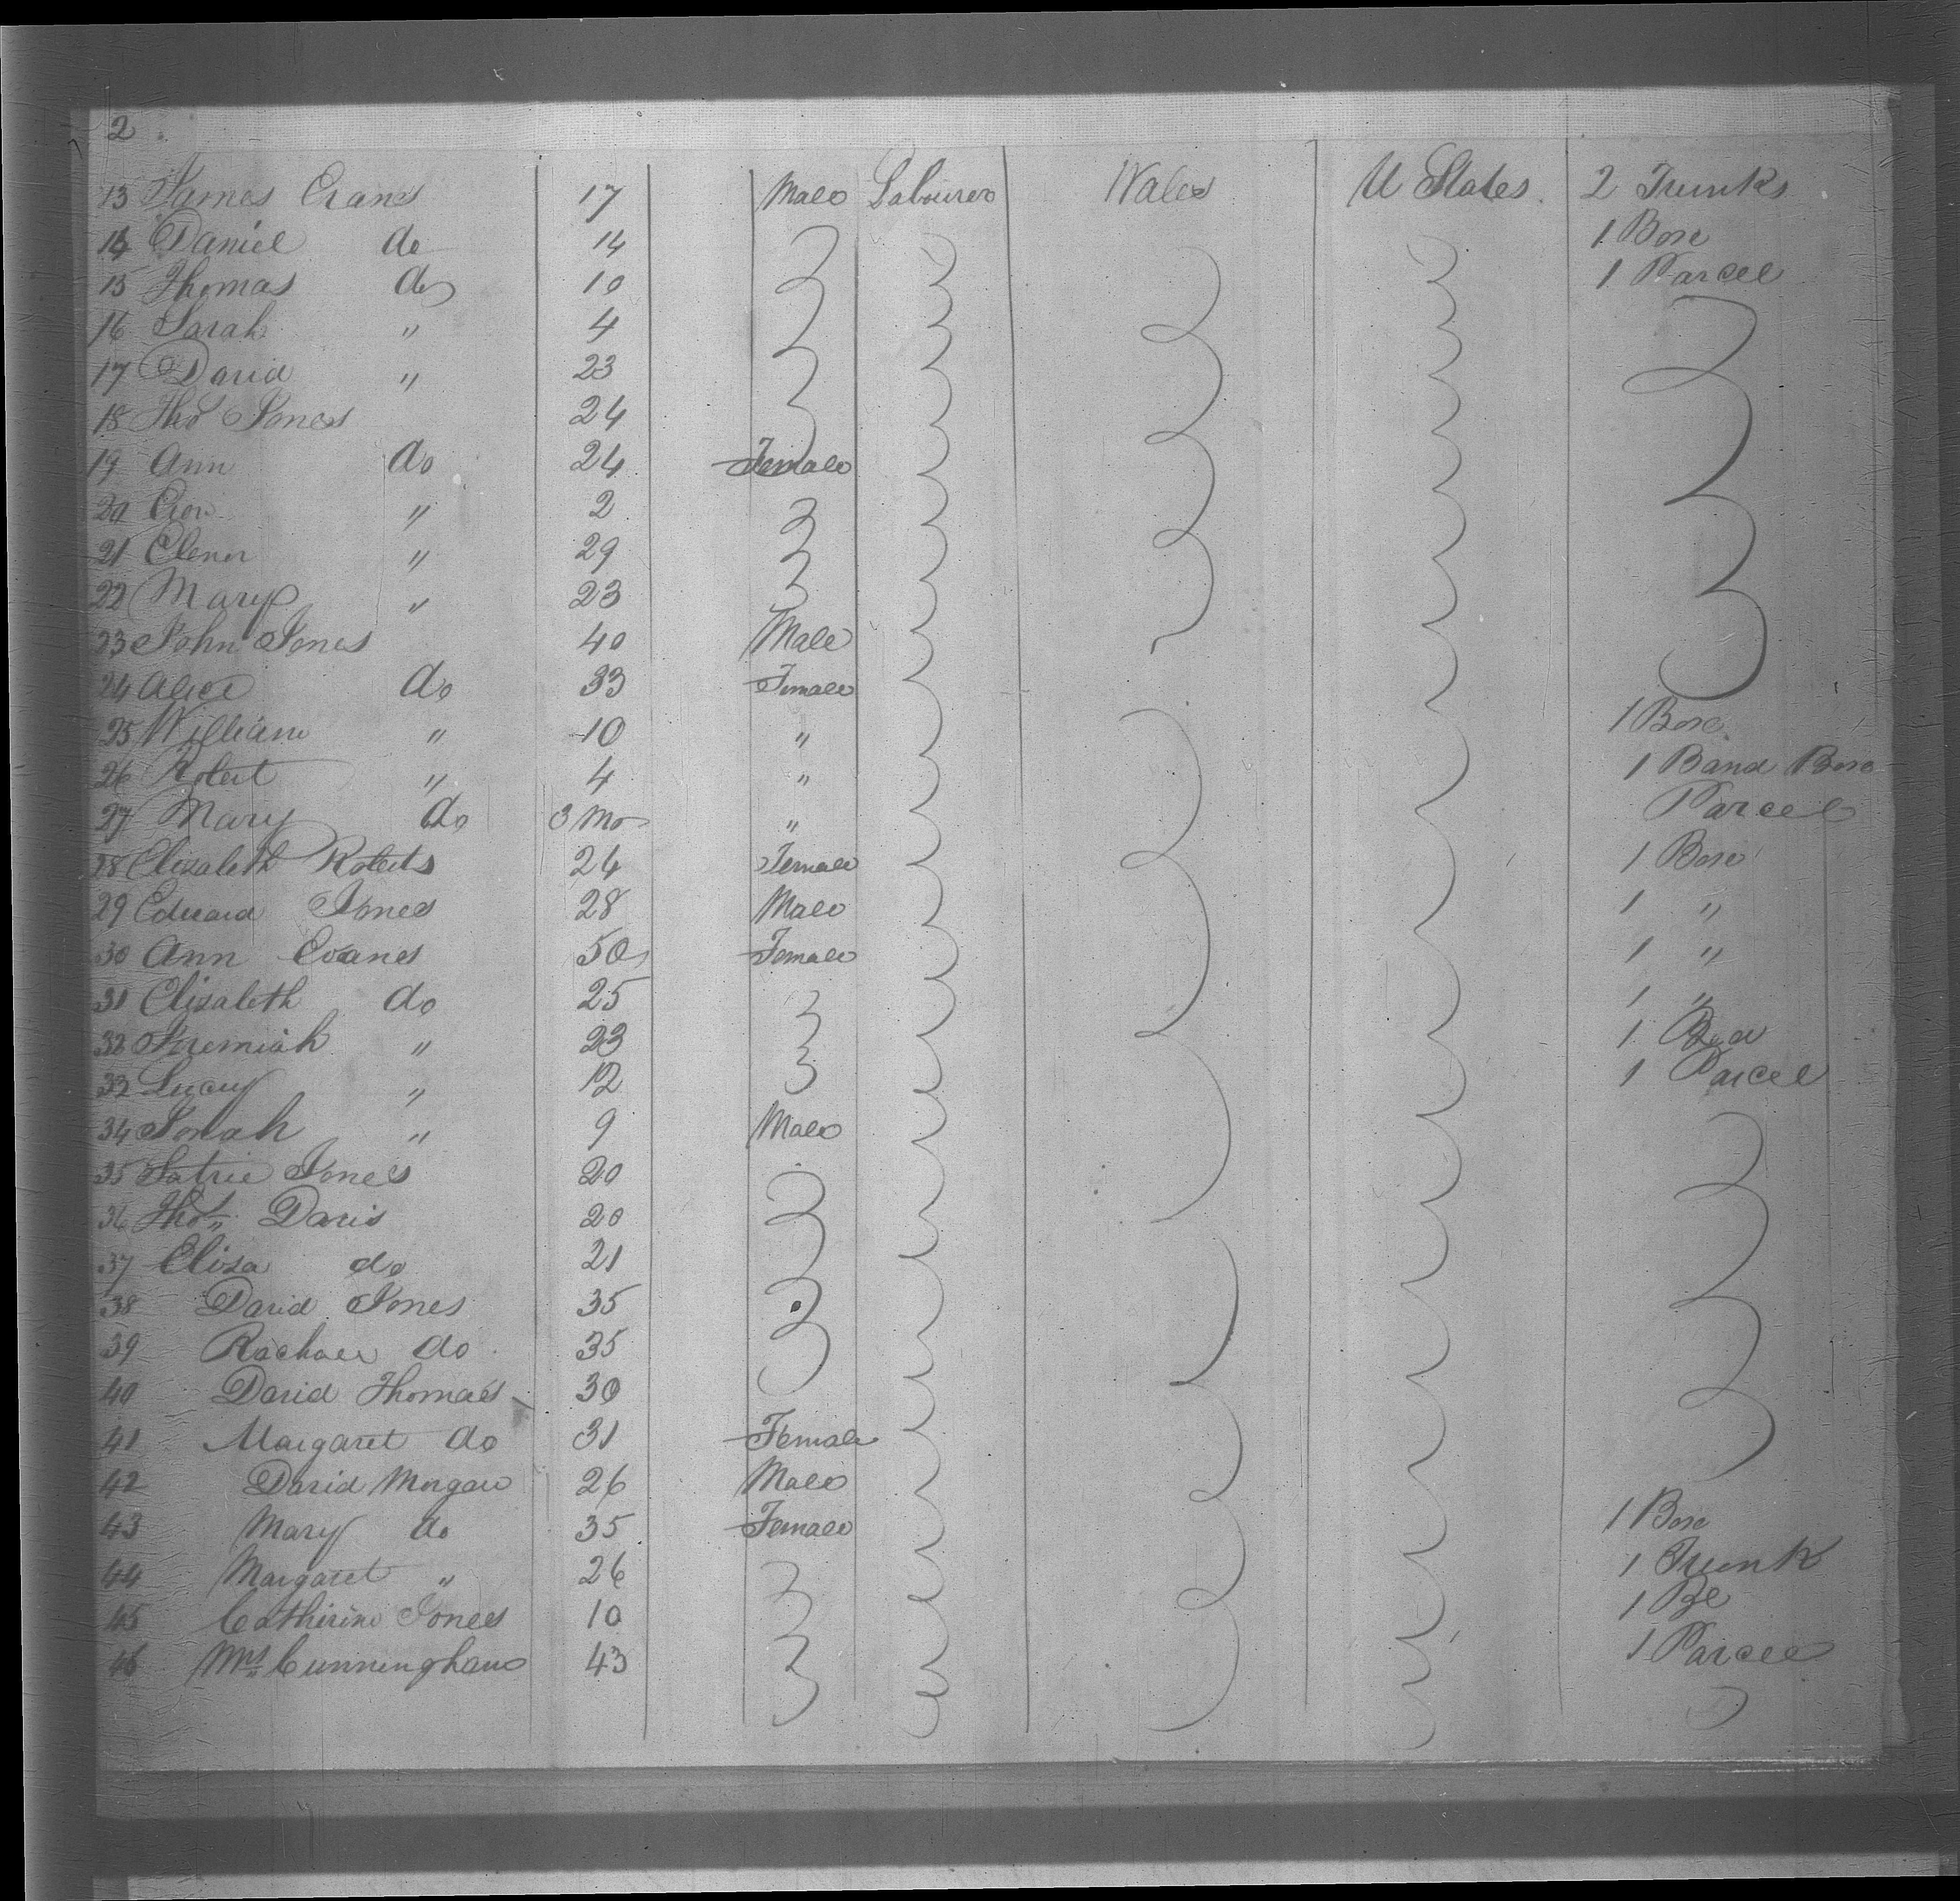 2
13 James Evans 17 Male Labourer Wales U States 2 Trunks
14 Daniel do 14 1 Box
15 Thomas do 10 1 Parcel
16 Sarah " 4
17 David " 23
18 Tho Jones 24
19 Ann do 24 Female
20 " 2
21 Elener " 29
22 Mary " 23
23 John Jones 40 Male
24 Alice do 33 Female
25 William " 10 " 1 Box
26 Robert " 4 " 1 Band Box
27 Mary do 3 Mo " Parcel
28 Elizabeth Roberts 24 Female 1 Box
29 Edward Jones 28 Male 1 "
30 Ann Evans 50 Female 1 "
31 Elizabeth do 25 1 "
32 Jeremiah " 23 1 Bed
33 Lucy " 12 1 Parcel
34 Jonah " 9 Male
35 Jones 20
36 Thos Davis 20
37 Eliza do 21
38 David Jones 35
39 Rachael do 35
40 David Thomas 30
41 Margaret do 31 Female
42 David Morgan 26 Male
43 Mary do 35 Female 1 Box
44 Margaret " 26 1 Trunk
45 Catherine Jones 10 1
46 Mrs Cunningham 43 1 Parcel